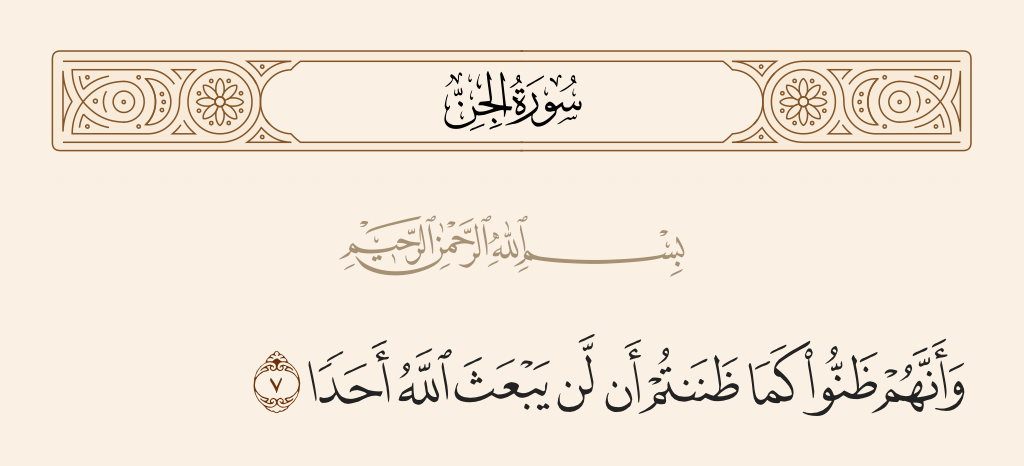 سُورَةُ الجِنِّ
بِسْمِ ٱللَّهِ ٱلرَّحْمَٰنِ ٱلرَّحِيمِ
وَأَنَّهُمْ ظَنُّوا۟ كَمَا ظَنَنتُمْ أَن لَّن يَبْعَثَ ٱللَّهُ أَحَدًا ٧